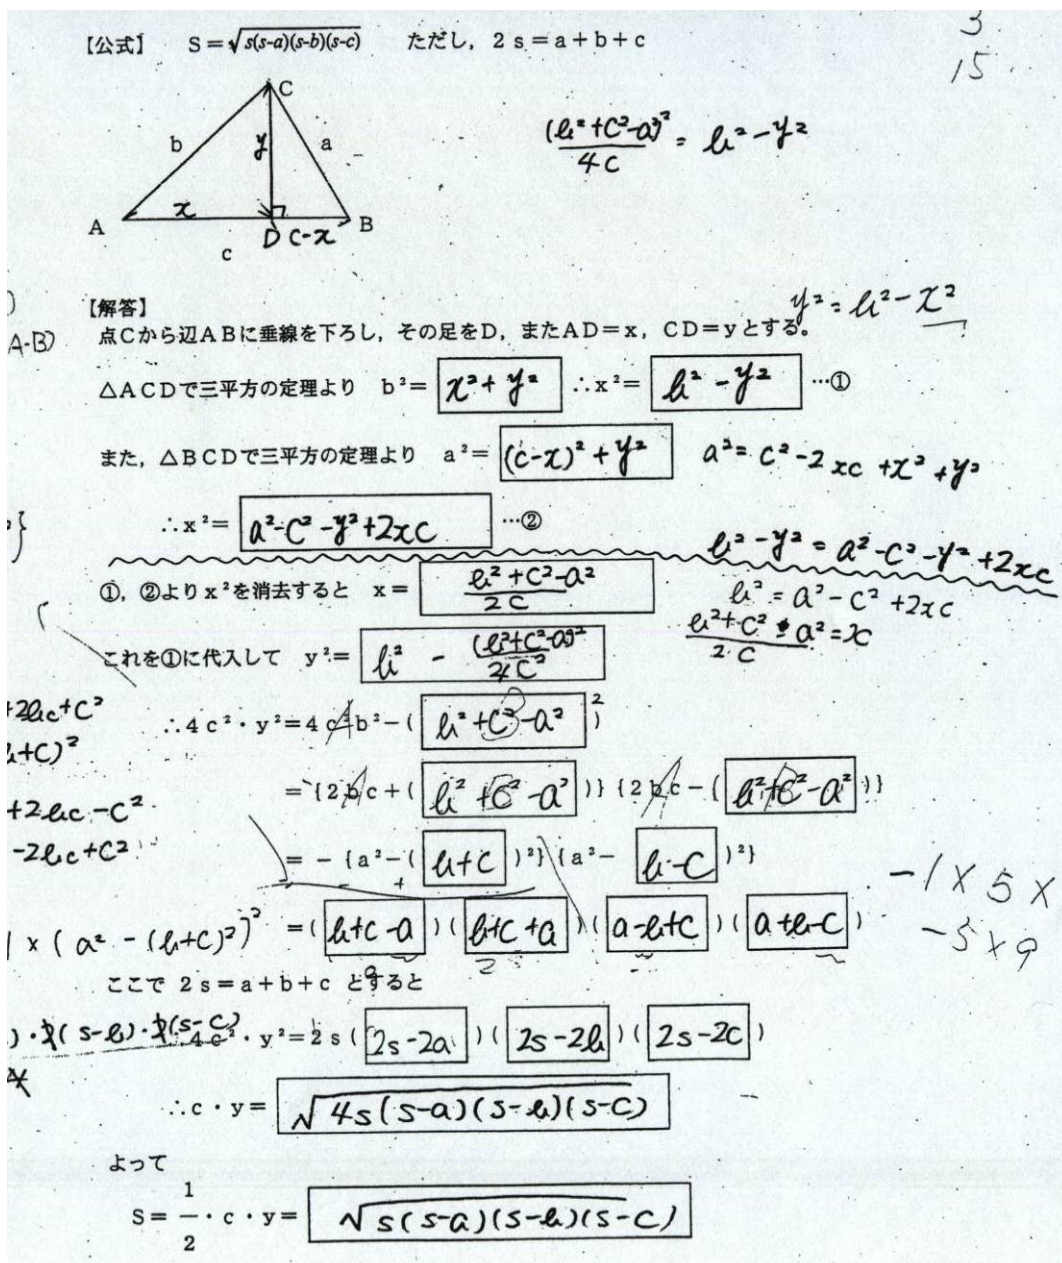 【公式】 S=√s(s-a)(s-b)(s-c) ただし，2s=a+b+c
3
15
C
b y a
x
A D c-x B
c
(b²+c²-a²)²/4c = b²-y²
【解答】
y²=b²-x²
点Cから辺ABに垂線を下ろし，その足をD，またAD=x，CD=yとする。
A-B)
△ACDで三平方の定理より b²= x²+y² ∴x²= b²-y² …①
また，△BCDで三平方の定理より a²= (c-x)²+y² a²=c²-2xc+x²+y²
∴x²= a²-c²-y²+2xc …②
b²-y²=a²-c²-y²+2xc
①，②よりx²を消去すると x= b²+c²-a²/2c
b²=a²-c²+2xc
b²+c²-a²/2c=x
これを①に代入して y²= b² - (b²+c²-a²)²/4c²
+2bc+c²
∴4c²・y²=4c²b²-( b²+c²-a² )²
b+c)²
={2bc+( b²+c²-a² )}{2bc-( b²+c²-a² )}
+2bc-c²
-2bc+c²
=-{a²-( b+c )²}{a²- b-c )²}
-1×5×
-5×9
×(a²-(b+c)²)²
=( b+c-a )( b+c+a )( a-b+c )( a+b-c )
2s
ここで 2s=a+b+c とすると
)・2(s-b)・2(s-c)
4c²・y²=2s( 2s-2a )( 2s-2b )( 2s-2c )
∴c・y= √4s(s-a)(s-b)(s-c)
よって
S=1/2・c・y= √s(s-a)(s-b)(s-c)